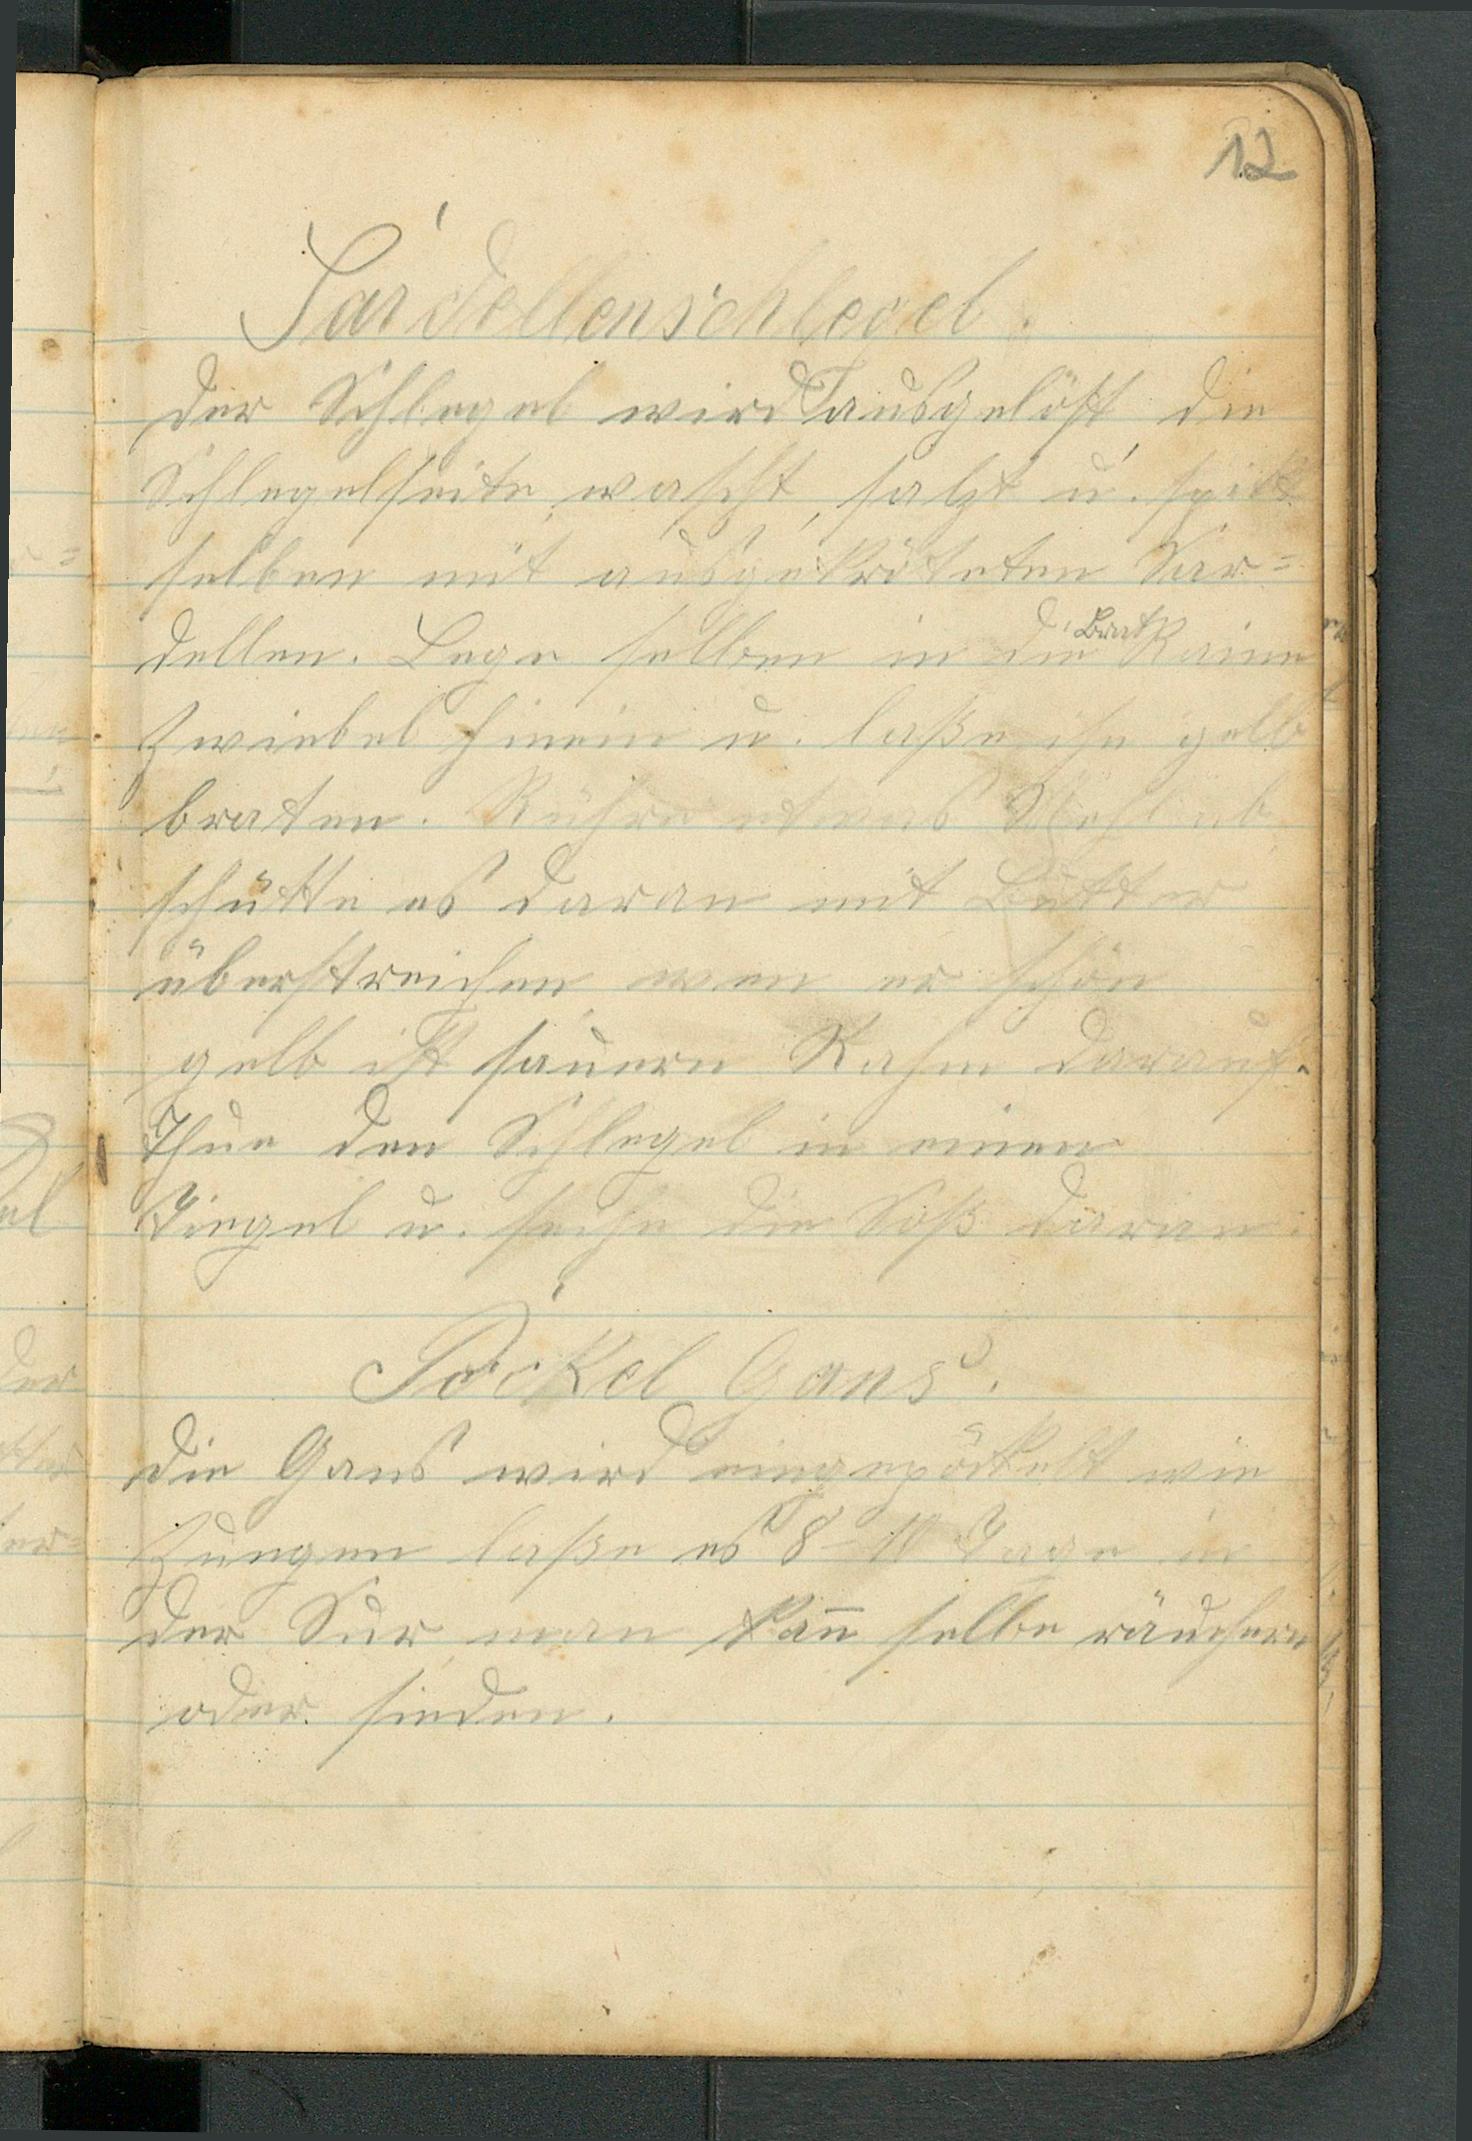 12
Sardellenschlegel.
Der Schlegel wird ausgelöst, die
Schlegelseite, wascht, salzt u. spickt
selben mit ausgekröteten Sar=
dellen. Lege selben in die Brat Raine
Zwiebel hinein u. laße ihn gelb
braten. Rühre etwas Mehl ab
schütte es daran mit Butter
überstreichen wen er schön
gelb ist sauern Rahm darauf.
Thue den Schlegel in einen
Tiegel u. seihe die Soß daran.
Pöckel Gans.
Die Gans wird eingepöckelt wie
Zungen laße es 8-10 Tage in
der Sur man kan̅ selbe räuchern
oder sieden.